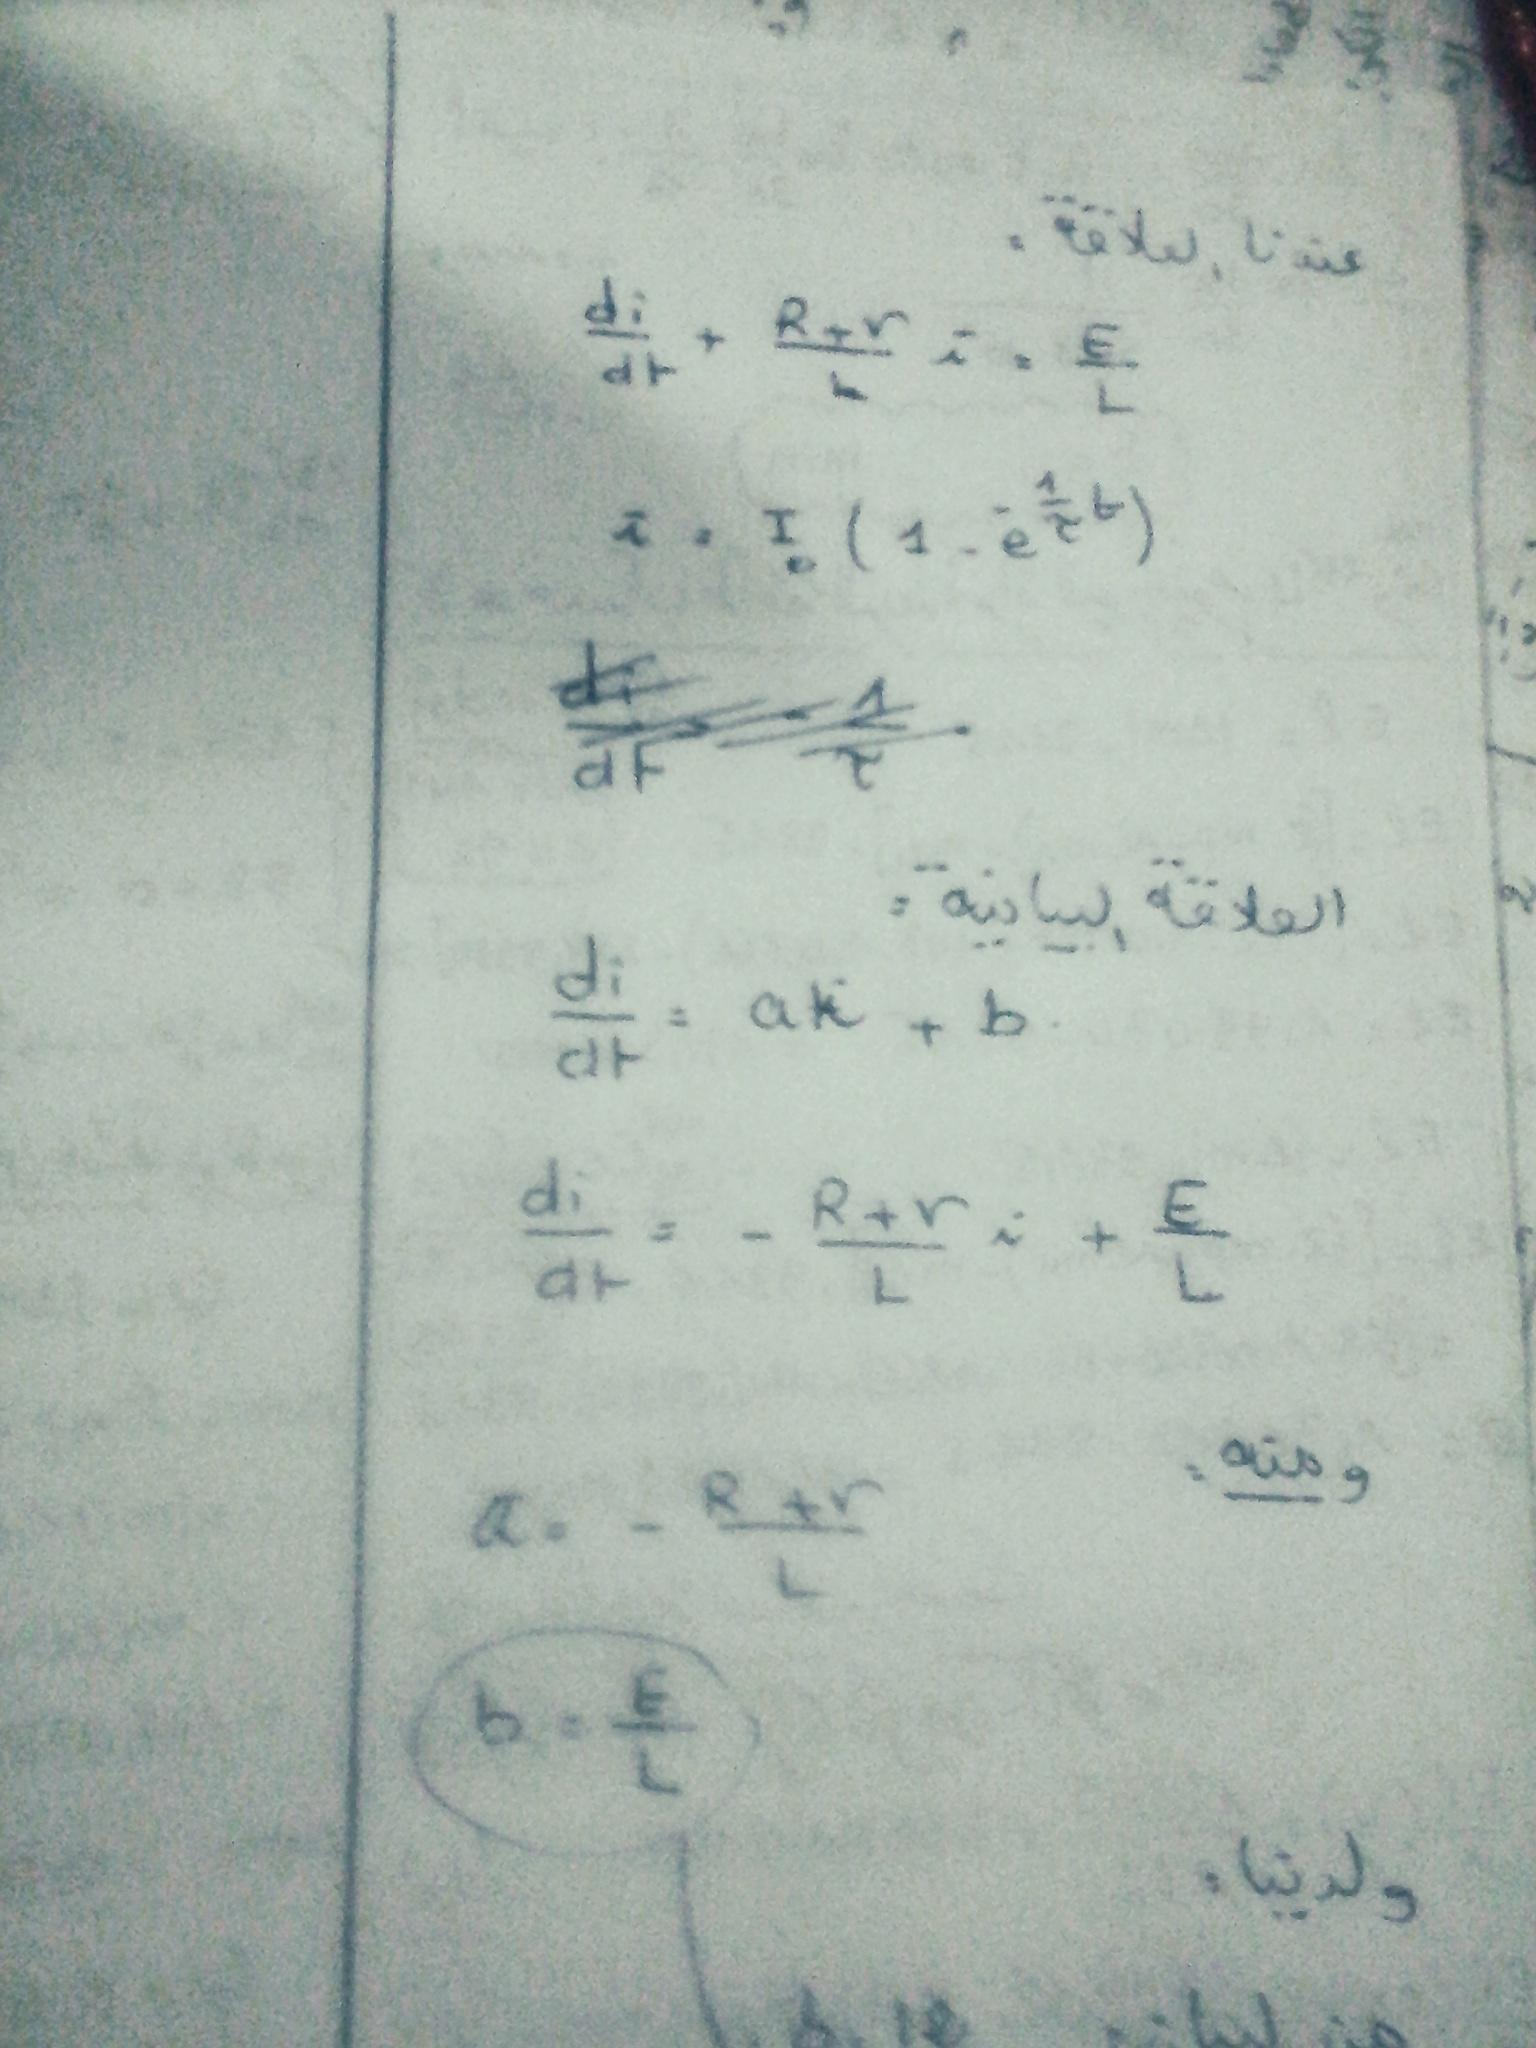 عندنا العلاقة:
di/dt + R+r/L i = E/L
i = I₀ (1 - e^-1/τ t)
di/dt = 1/τ
العلاقة البيانية:
di/dt = ai + b
di/dt = - R+r/L i + E/L
ومنه:
a = - R+r/L
b = E/L
ولدينا:
من البيان: